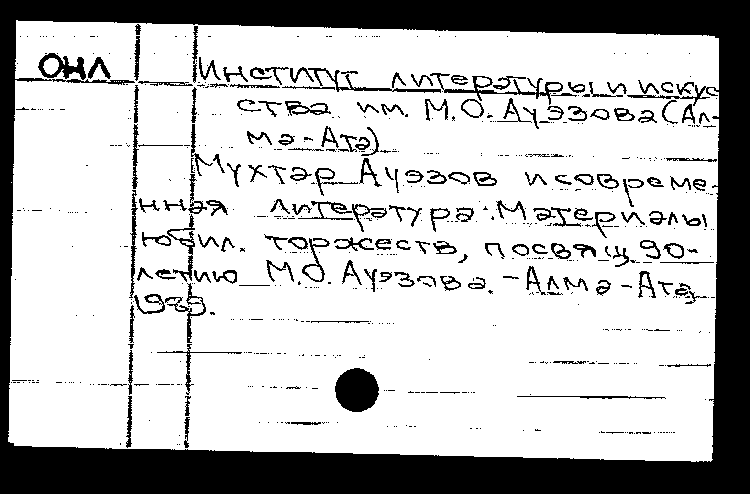 ОНЛ
Институт литературы и искус
ства им. М.О. Ауэзова (Ал-
ма-Ата)
Мухтар Ауэзов и совреме-
нная литература: Материалы
юбил. торжеств, посвящ. 90-
летию М.О. Ауэзова. - Алма-Ата,
1989.